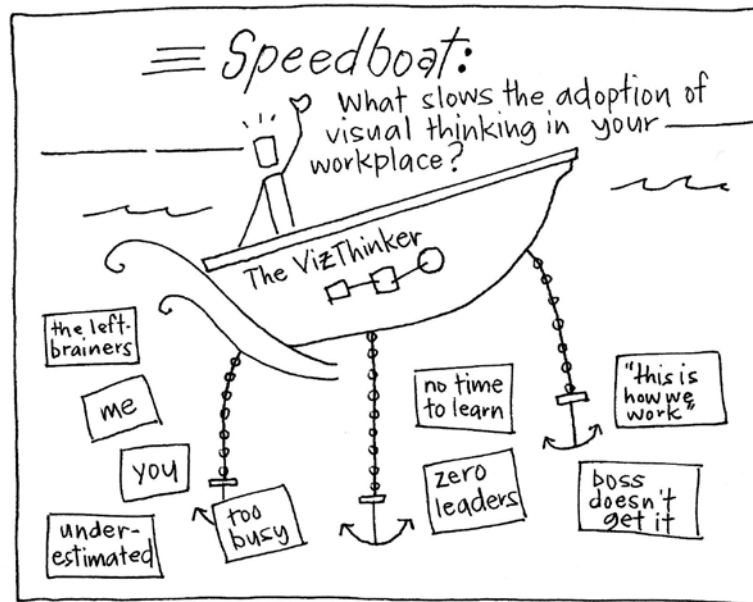 Speedboat:
What slows the adoption of
visual thinking in your
workplace?
The VizThinker
the left-
brainers
me
you
under-
estimated
too
busy
no time
to learn
zero
leaders
"this is
how we
work"
boss
doesn't
get it